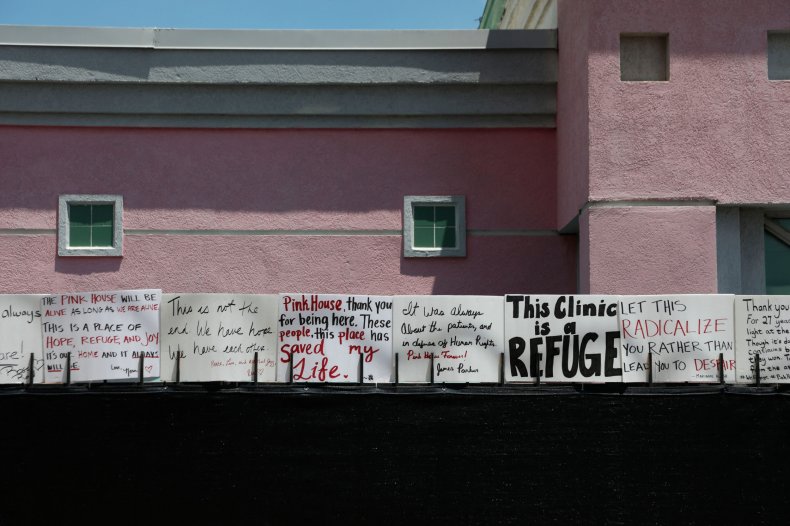 always
THE PINK HOUSE WILL BE
ALIVE AS LONG AS WE ARE ALIVE.
THIS IS A PLACE OF
HOPE, REFUGE, AND JOY
IT'S OUR HOME AND IT ALWAYS
WILL BE
Love,
This is not the
end We have hope
We have each other
Pink House, thank you
for being here. These
people, this place has
saved my
Life.
It Was Always
About the patients, and
in defense of Human Rights
Pink House Forever!
James Parker
This Clinic
is a
REFUGE
LET THIS
RADICALIZE
YOU RATHER THAN
LEAD YOU TO DESPAIR
Thank you
For 27 years
light at the
Though it's
continuing
won. T